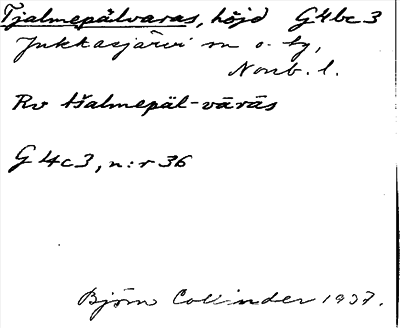 Tjalmepälvaras, höjd G4bc3
Jukkasjärvi sn o. tg,
Norrb. l.
Rv tšalmepäl-vārās
G4c3, n:r 36
Björn Collinder 1937.